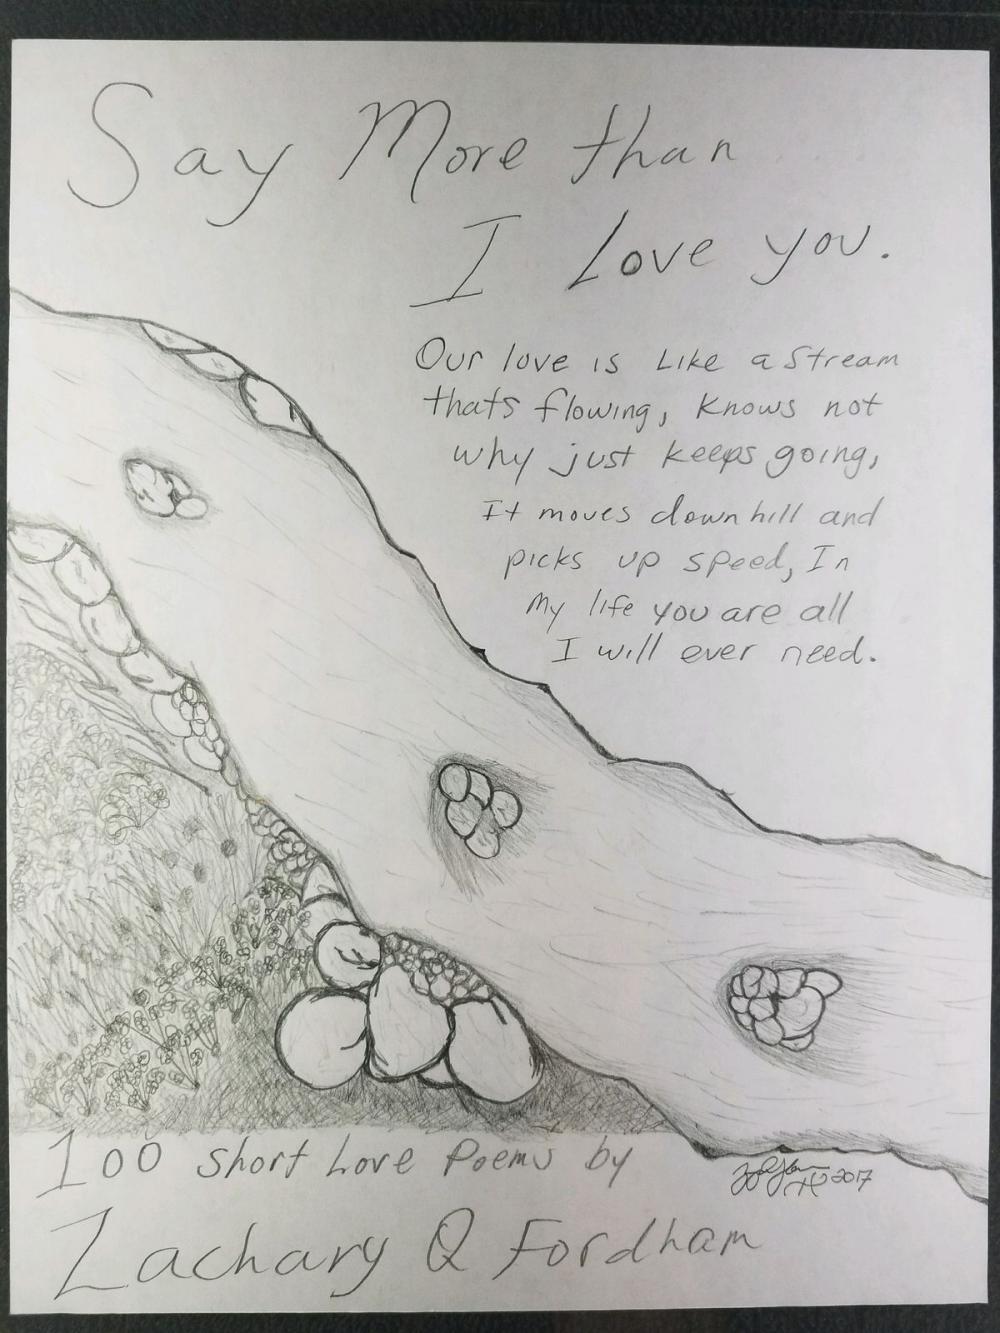 Say More than
I Love you.
Our love is Like a Stream
thats flowing, Knows not
why just keeps going,
It moves down hill and
picks up speed, In
My life you are all
I will ever need.
100 Short Love Poems by
2017
Zachary Q Fordham